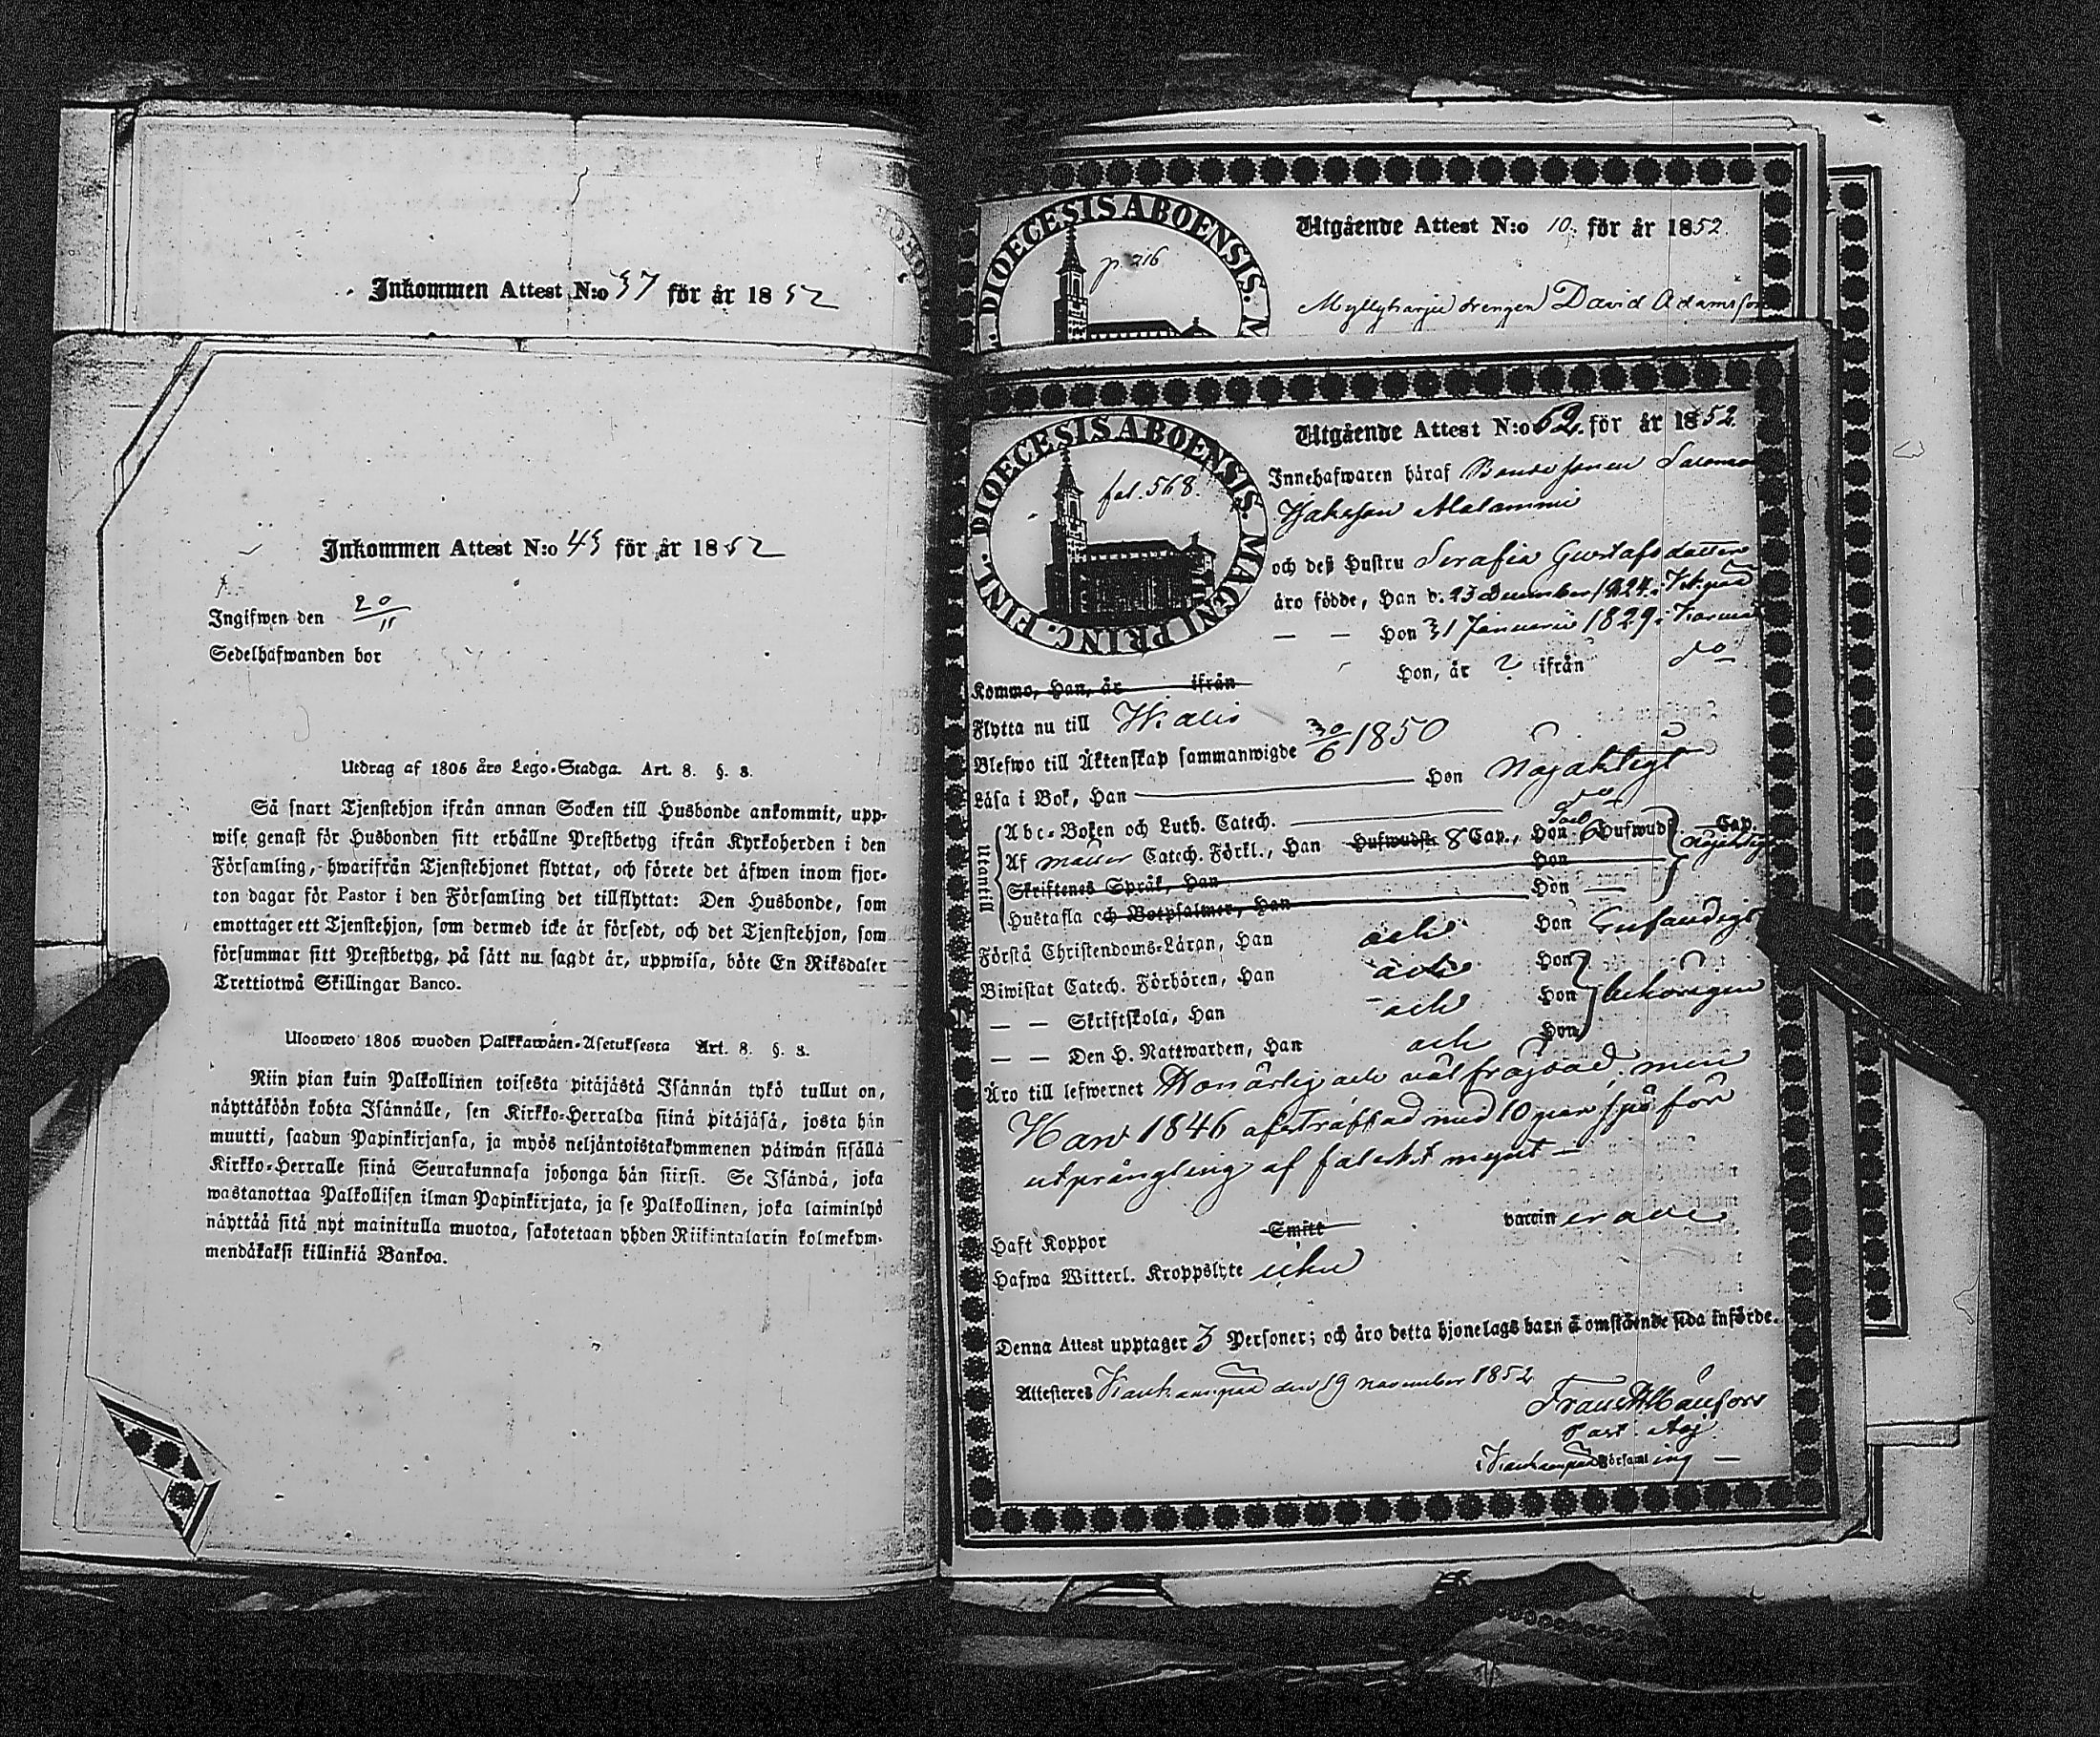 Inkommen Attest N:o 37 för år 1852
Inkommen Attest N:o 43 för år 1852
Ingifwen den 20/11
Sedelhafwanden bor
Utdrag af 1805 års Lego-Stadga. Art. 8. §. 8.
Så snart Tjenstehjon ifrån annan Socken till Husbonde ankommit, upp-
wise genast för Husbonden sitt erhållne Prestbetyg ifrån Kyrkoherden i den
Församling, hwarifrån Tjenstehjonet flyttat, och förete det äfwen inom fjor-
ton dagar för Pastor i den Församling det tillflyttat: Den Husbonde, som
emottager ett Tjenstehjon, som dermed icke är försedt, och det Tjenstehjon, som
försummar sitt Prestbetyg, på sätt nu sagdt är, uppwisa, böte En Riksdaler
Trettiotwå Skillingar Banco.
Ulosweto 1805 wuoden Palkkawäen-Asetuksesta Art. 8. §. 8.
Niin pian kuin Palkollinen toisesta pitäjästä Isännän tykö tullut on,
näyttäköön kohta Isännälle, sen Kirkko-Herralda siinä pitäjäsä, josta hän
muutti, saadun Papinkirjansa, ja myös neljäntoistakymmenen päiwän sisällä
Kirkko-Herralle siinä Seurakunnasa johonga hän siirsi. Se Isändä, joka
wastanottaa Palkollisen ilman Papinkirjata, ja se Palkollinen, joka laiminlyö
näyttää sitä nyt mainitulla muotoa, sakotetaan yhden Riikintalarin kolmekym-
mendäkaksi killinkiä Bankoa.
DIOECESIS ABOENSIS. M
p. 216
Utgående Attest N:o 10. för år 1852.
Myllyharju drengen David Adamsson
DIOECESIS ABOENSIS. MAGNI PRINC. FINL.
fol. 568.
Utgående Attest N:o 62. för år 1852.
Innehafwaren häraf Bondesonen Salomon
Jakobsson Alalammi
och deß Hustru Serafia Gustafsdotter
äro födde, Han d. 23 December 1824.
— — Hon 31 Januarii 1829.
Komme, Han, år ifrån Hon, år ? ifrån do
Flytta nu till
Blefwo till Äktenskap sammanwigde 30/6 1850
Läsa i Bok, Han — Hon Nöjaktigt
Utantill
Abc-Boken och Luth. Catech. — do
Af Catech. Förkl., Han Hufwudst. 8 Cap., Hon 6 Hufwud. Cap.
Skriftenes Språk, Han Hon
Hustafla och Botpsalmer, Han Hon —
Förstå Christendoms-Läran, Han och Hon Enfaldigt
Biwistat Catech. Förhören, Han och Hon
— — Skriftskola, Han och Hon behörigen
— — Den H. Nattwarden, Han och Hon
Äro till lefwernet Hon ärlig och väl frägdad, men
Han 1846 afstraffad med 10 par spö för
utprångling af falskt mynt —
Haft Koppor Smitt vaccin
Hafwa Witterl. Kroppslyte
Denna Attest upptager 3 Personer; och äro detta hjonelags barn å omstående sida införde.
Attesteras Kankaanpää den 19 november 1852
Past. Adj.
i Kankaanpää Församling —